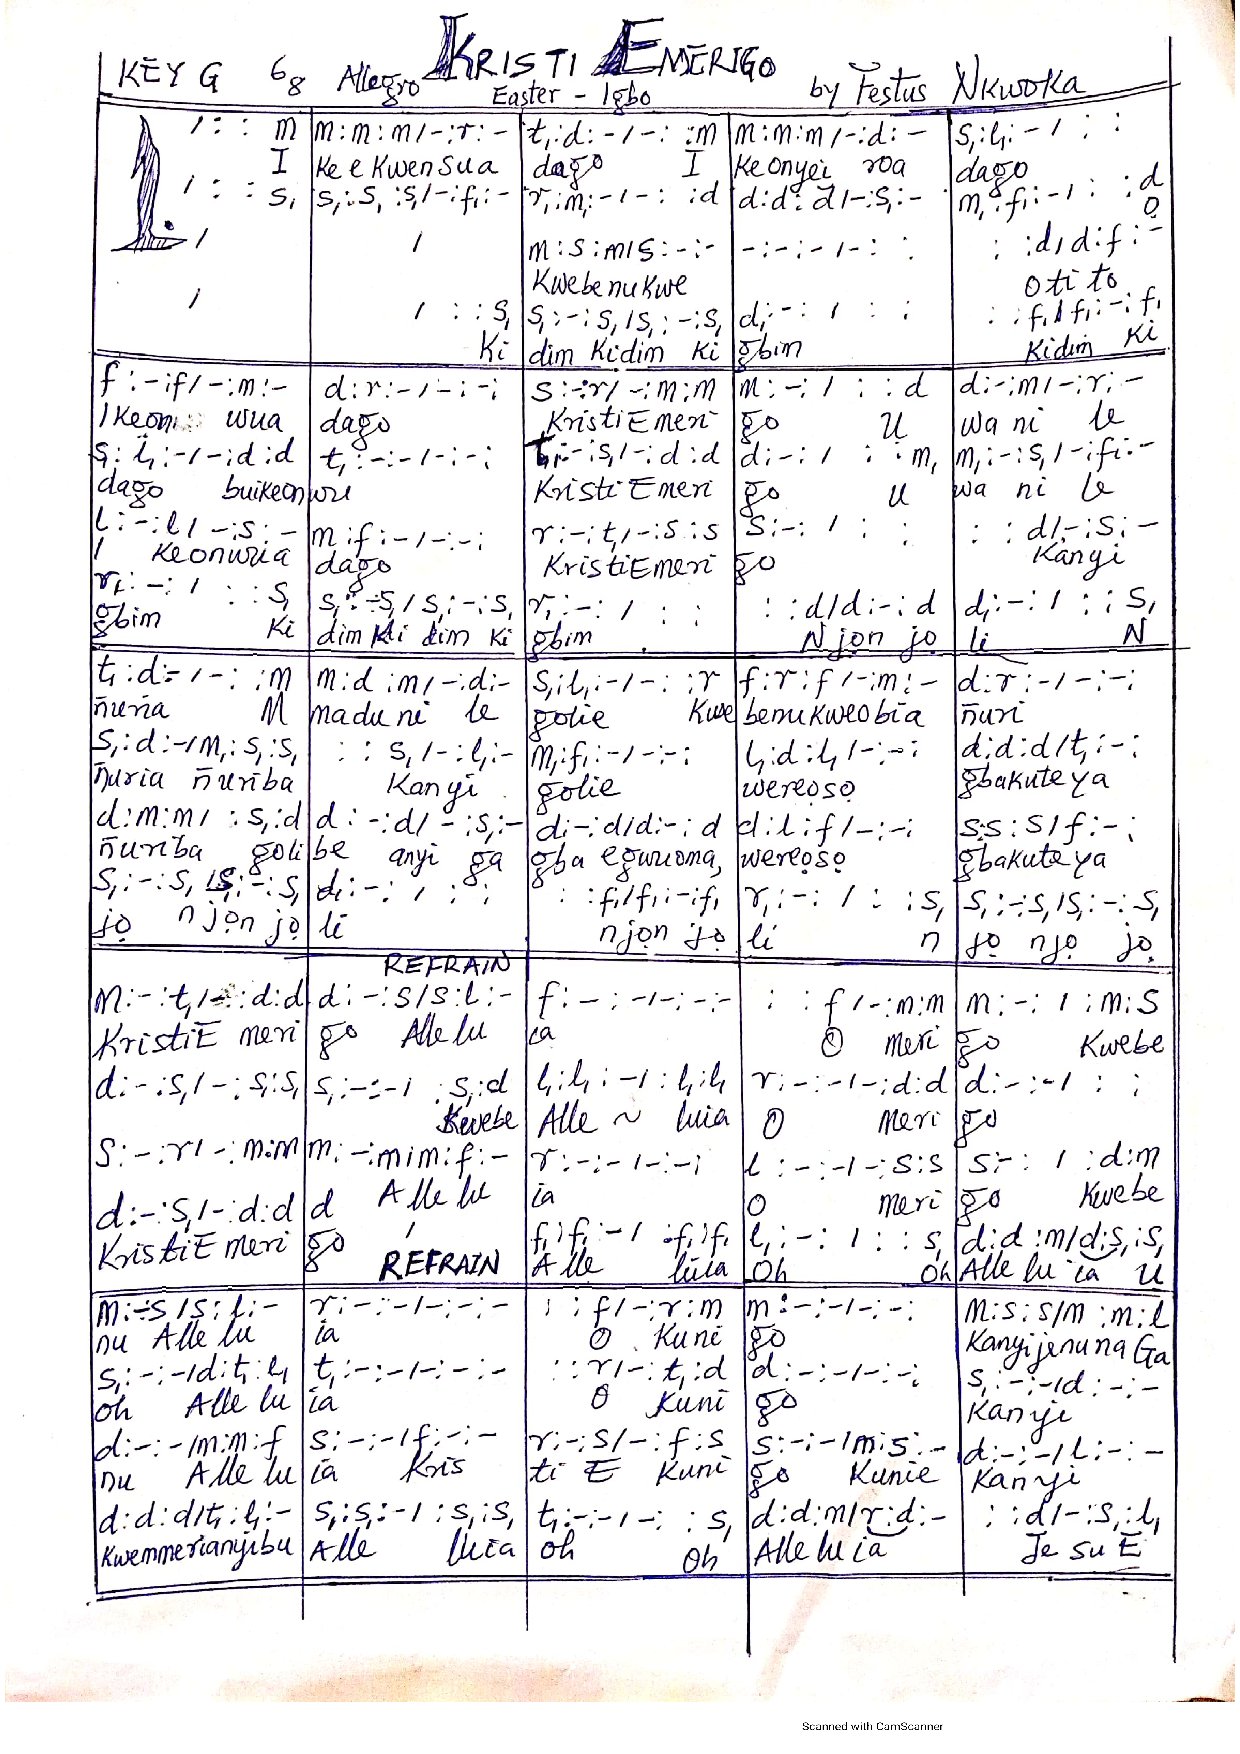 KRISTI EMERIGO
KEY G 6 8 Allegro Easter - Igbo by Festus Nkwoka
1. / : : m | m : m : m / - : r : - | t, : d : - / - : : m | m : m : m / - : d : - | s, : l, : - / : :
I | Ke e Kwen sua | dago I | Keonyei roa | dago
/ : : s, | s, : s, : s, / - : f, : - | r, : m, : - / - : : d | d : d : d / - : s, : - | m, : f, : - / : : d
O
/ | / | m : s : m / s : - : - | - : - : - / - : : | : : d / d : f : -
Kwebenukwe | O ti to
/ | / : : s, | s, : - : s, / s, : - : s, | d, : - : / : : | : : f, / f, : - : f,
Ki | dim Kidim Ki | gbim | Kidim Ki
f : - : f / - : m : - | d : r : - / - : - : | s : - : r / - : m : m | m : - : / : : d | d : - : m / - : r : -
Ikeon wua | dago | Kristi Emeri | go U | wa ni le
s, : l, : - / - : d : d | t, : - : - / - : - : | t, : - : s, / - : d : d | d : - : / : : m, | m, : - : s, / - : f, : -
dago buikeonwu | Kristi Emeri | go u | wa ni le
l : - : l / - : s : - | m : f : - / - : - : | r : - : t, / - : s : s | s : - : / : : | : : d / - : s, : -
I Keonwua | dago | KristiEmeri | go | Kanyi
r, : - : / : : s, | s, : - : s, / s, : - : s, | r, : - : / : : | : : d / d : - : d | d, : - : / : : s,
gbim Ki | dim Ki dim Ki | gbim | N jọn jọ | li N
t, : d : - / - : : m | m : d : m / - : d : - | s, : l, : - / - : : r | f : r : f / - : m : - | d : r : - / - : - :
ñuria M | madu ni le | golie Kwe | benukweobia | ñuri
s, : d : - / m, : s, : s, | : : s, / - : l, : - | m, : f, : - / - : - : | l, : d : l, / - : - : | d : d : d / t, : - :
ñuria ñuriba | Kanyi | golie | wereọsọ | gbakuteya
d : m : m / : s, : d | d : - : d / - : s, : - | d : - : d / d : - : d | d : l : f / - : - : | s : s : s / f : - :
ñuriba goli | be anyi ga | gba egwuọma, | wereọsọ | gbakuteya
s, : - : s, / s, : - : s, | d : - : / : : | : : f, / f, : - : f, | r, : - : / : : s, | s, : - : s, / s, : - : s,
jọ n jọn jọ | li | njọn jọ | li n | jọ njọ jọ.
REFRAIN
m : - : t, / - : d : d | d : - : s / s : l : - | f : - : - / - : - : - | : : f / - : m : m | m : - : / : m : s
KristiE meri | go Alle lu | ia | O meri | go Kwebe
d : - : s, / - : s, : s, | s, : - : - / : s, : d | l, : l, : - / : l, : l, | r : - : - / - : d : d | d : - : - / : :
Kwebe | Alle ~ luia | O meri | go
s : - : r / - : m : m | m : - : m / m : f : - | r : - : - / - : - : | l : - : - / - : s : s | s : - : / : d : m
A lle lu | ia | O meri | go Kwebe
d : - : s, / - : d : d | d / | f, : f, : - / : f, : f, | l, : - : / : : s, | d : d : m / d : s, : s,
KristiE meri | go | A lle luia | Oh Oh | Alle lu ia U
REFRAIN
m : - : s / s : l : - | r : - : - / - : - : - | : : f / - : r : m | m : - : - / - : - : | m : s : s / m : m : l
nu Alle lu | ia | O Kuni | go | Kanyijenuna Ga
s, : - : - / d : t, : l, | t, : - : - / - : - : - | : : r / - : t, : d | d : - : - / - : - : | s, : - : - / d : - : -
oh Alle lu | ia | O Kuni | go | Kanyi
d : - : - / m : m : f | s : - : - / f : - : - | r : - : s / - : f : s | s : - : - / m : s : - | d : - : - / l : - : -
nu Alle lu | ia Kris | ti E Kuni | go Kunie | Kanyi
d : d : d / t, : l, : - | s, : s, : - / : s, : s, | t, : - : - / - : : s, | d : d : m / r : d : - | : : d / - : s, : l,
Kwemmerianyibu | Alle luia | oh Oh | Alle lu ia | Je su E
Scanned with CamScanner